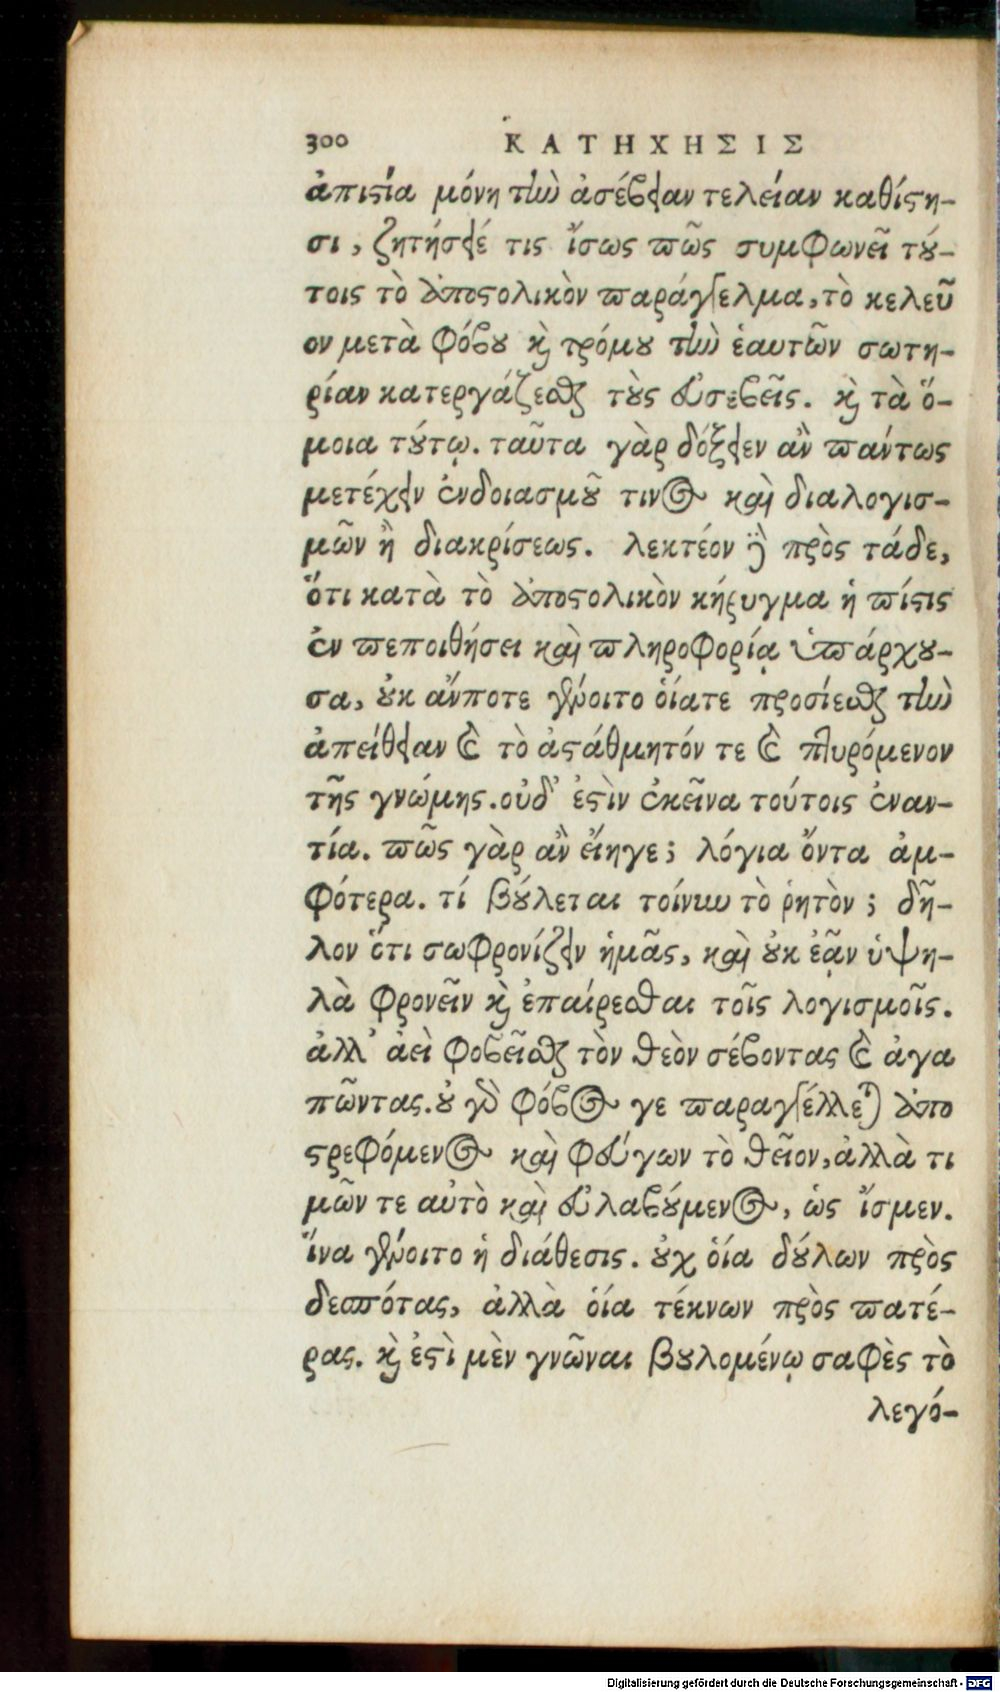 300 ΚΑΤΗΧΗΣΙΣ
ἀπιςία μόνη τὴν ἀσέβειαν τελείαν καθίςη-
σι, ζητήσειέ τις ἴσως πῶς συμφωνεῖ τού-
τοις τὸ ἀποςολικὸν παράγγελμα, τὸ κελεῦ
ον μετὰ φόβου καὶ τρόμου τὴν ἑαυτῶν σωτη-
ρίαν κατεργάζεσθαι τοὺς εὐσεβεῖς. καὶ τὰ ὅ-
μοια τούτῳ. ταῦτα γὰρ δόξειεν ἂν πάντως
μετέχειν ἐνδοιασμοῦ τινος καὶ διαλογισ-
μῶν ἢ διακρίσεως. λεκτέον δὲ πρὸς τάδε,
ὅτι κατὰ τὸ ἀποςολικὸν κήρυγμα ἡ πίςις
ἐν πεποιθήσει καὶ πληροφορίᾳ ὑπάρχου-
σα, οὐκ ἄνποτε γένοιτο ὁίατε προσίεσθαι τὴν
ἀπείθειαν καὶ τὸ ἀςάθμητόν τε καὶ πτυρόμενον
τῆς γνώμης. οὐδ' ἐςὶν ἐκεῖνα τούτοις ἐναν-
τία. πῶς γὰρ ἂν εἴηγε; λόγια ὄντα ἀμ-
φότερα. τί βούλεται τοίνυν τὸ ῥητὸν; δῆ-
λον ὅτι σωφρονίζειν ἡμᾶς, καὶ οὐκ ἐᾷν ὑψη-
λὰ φρονεῖν καὶ ἐπαίρεσθαι τοῖς λογισμοῖς.
ἀλλ' ἀεὶ φοβεῖσθαι τὸν θεὸν σέβοντας καὶ ἀγα
πῶντας. οὐ γὰρ φόβος γε παραγγέλλεται ἀπο
ςρεφόμενος καὶ φεύγων τὸ θεῖον, ἀλλὰ τι
μῶν τε αὐτὸ καὶ εὐλαβούμενος, ὡς ἴσμεν.
ἵνα γένοιτο ἡ διάθεσις. οὐχ ὁία δούλων πρὸς
δεσπότας, ἀλλὰ ὁία τέκνων πρὸς πατέ-
ρας. καὶ ἐςὶ μὲν γνῶναι βουλομένῳ σαφὲς τὸ
λεγό-
Digitalisierung gefördert durch die Deutsche Forschungsgemeinschaft - DFG